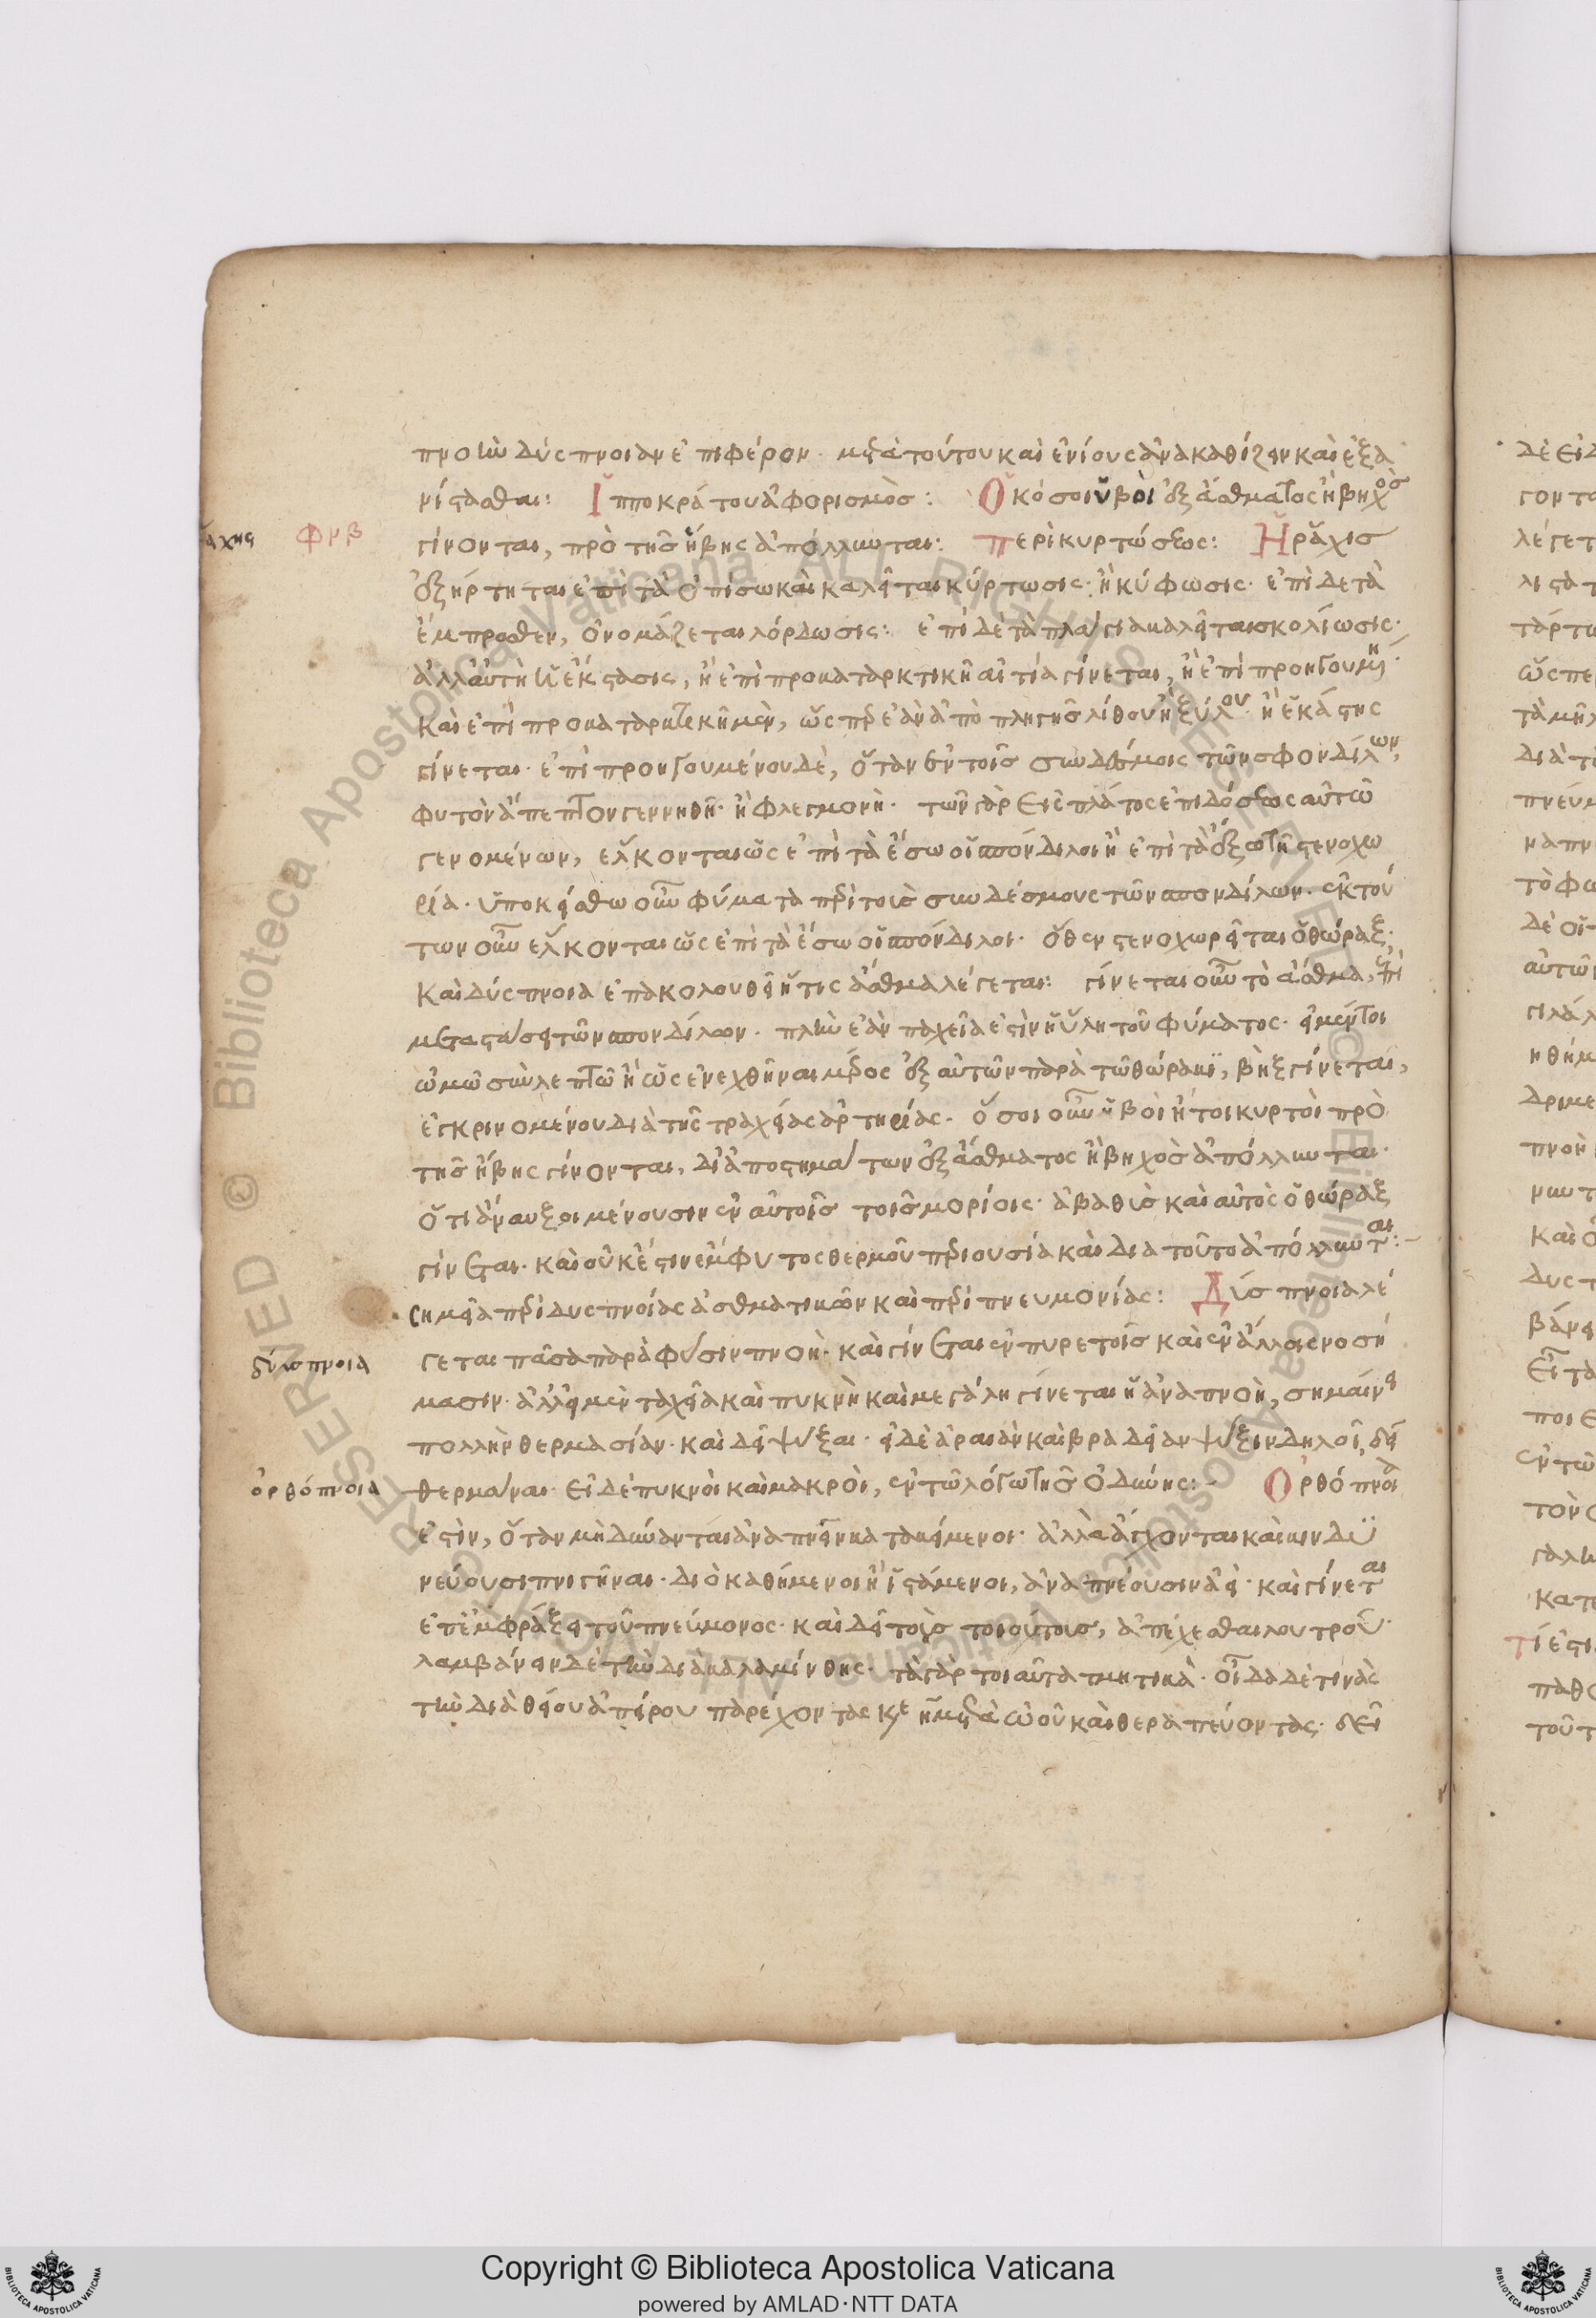 πνοϊὼ δύςπνοιαν ἐπιφέρον. μετὰ τούτου καὶ ἐνίους ἀνακαθίζειν καὶ ἐξα
νίςασθαι: Ἱπποκράτου ἀφορισμὸσ: Ὁκόσοι ὕβοὶ ἐξ ἄσθματος ἢ βηχὸσ
φνβ
γίνονται, πρὸ τῆσ ἥβης ἀπόλλυνται: περὶ κυρτώσεως: Ἡ ράχισ
ἐξήρτηται ἐπὶ τὰ ὀπίσω καὶ καλεῖται κύρτωσις. ἢ κύφωσις. ἐπὶ δὲ τὰ
ἔμπροσθεν, ὀνομάζεται λόρδωσις: ἐπὶ δὲ τὰ πλάγια καλεῖται σκολίωσις.
ἀλλ' αὐτὴ ἡ ἔκςασις, ἢ ἐπὶ προκαταρκτικῆ αἰτία γίνεται, ἢ ἐπὶ προηγουμένη.
καὶ ἐπὶ προκαταρκτικῆ μὲν, ὥςπερ ἐὰν ἀπὸ πληγῆσ λίθου ἢ ξύλου ἢ ἑκάςης
γίνεται. ἐπὶ προηγουμένου δὲ, ὅταν ἐν τοῖσ συνδέσμοις τῶν σφονδίλων,
φυτὸν ἄπεπτον γεννηθῆ. ἢ φλεγμονὴ. τῶν γὰρ εἰς πλάτος ἐπιδόσεως αὐτῶ
γενομένων, ἕλκονται ὡς ἐπὶ τὰ ἔσω οἱ σπόνδιλοι ἢ ἐπὶ τὰ ἔξω τῆ ςενοχω
ρία. ὑποκείσθω οὖν φύματα περὶ τοὺσ συνδέσμους τῶν σπονδίλων. ἐκ τού
των οὖν ἕλκονται ὡς ἐπὶ τὰ ἔσω οἱ σπόνδιλοι. ὅθεν ςενοχωρεῖται ὁ θώραξ.
καὶ δύςπνοια ἐπακολουθεῖ ἥτις ἄσθμα λέγεται: γίνεται οὖν τὸ ἄσθμα, ἐπὶ
μεταςάσει τῶν σπονδίλων. πλὴν ἐὰν παχεῖα ἐςὶν ἡ ὕλη τοῦ φύματος. εἰ μέντοι
ὠμῶ σὺν λεπτῶ ἢ ὡς ἐνεχθῆναι μέρος ἐξ αὐτῶν παρὰ τῶ θώρακϊ, βὴξ γίνεται,
ἐκκρινομένου διὰ τῆς τραχείας ἀρτηρίας. ὅσοι οὖν ὕβοὶ ἤτοι κυρτοὶ πρὸ
τῆσ ἥβης γίνονται, δι' ἀποςημάτων ἐξ ἄσθματος ἢ βηχὸσ ἀπόλλυνται.
ὅτι ἀναυξοιμένουσιν ἐν αὐτοῖσ τοῖσ μορίοις. ἀβαθὺσ καὶ αὐτὸς ὁ θώραξ
γίνεται. καὶ οὐκ ἔςιν ἔμφυτος θερμοῦ περιουσία καὶ διὰ τοῦτο ἀπόλλυνται:
σημεῖα περὶ δυςπνοίας ἀσθματικῶν καὶ περὶ πνευμονίας: Δύσπνοια λέ
δύσπνοια
γεται πᾶσα παρὰ φύσιν πνοὴ. καὶ γίνεται ἐν πυρετοῖσ καὶ ἐν ἄλλοις νοσή
μασιν. ἀλλ' εἰ μὲν ταχεῖα καὶ πυκνὴ καὶ μεγάλη γίνεται ἡ ἀναπνοὴ, σημαίνει
πολλὴν θερμασίαν. καὶ δεῖ ψύξαι. εἰ δὲ ἀραιὰν καὶ βραδεῖαν ψύξιν δηλοῖ, δεῖ
ὀρθόπνοια
θερμάναι. εἰ δὲ πυκνοὶ καὶ μακροὶ, ἐν τῶ λόγω τῆσ ὀδύνης: Ὀρθόπνοια
ἐςὶν, ὅταν μὴ δύνανται ἀναπνεῖν κατακείμενοι. ἀλλὰ ἄγχονται καὶ κινδϋ
νεύουσι πνιγῆναι. διὸ καθήμενοι ἢ ἱςάμενοι, ἀναπνέουσιν ἀεὶ. καὶ γίνεται
ἐπ' ἐμφράξει τοῦ πνεύμονος. καὶ δεῖ τοὺσ τοιούτουσ, ἀπέχεσθαι λουτροῦ.
λαμβάνειν δὲ τὴν διὰ καλαμίνθης. τὰ γὰρ τοιαῦτα τμητικὰ. οἶδα δὲ τινὰς
τὴν διὰ θείου ἀπείρου παρέχοντας μετὰ ὠοῦ καὶ θεραπεύοντας. δεῖ